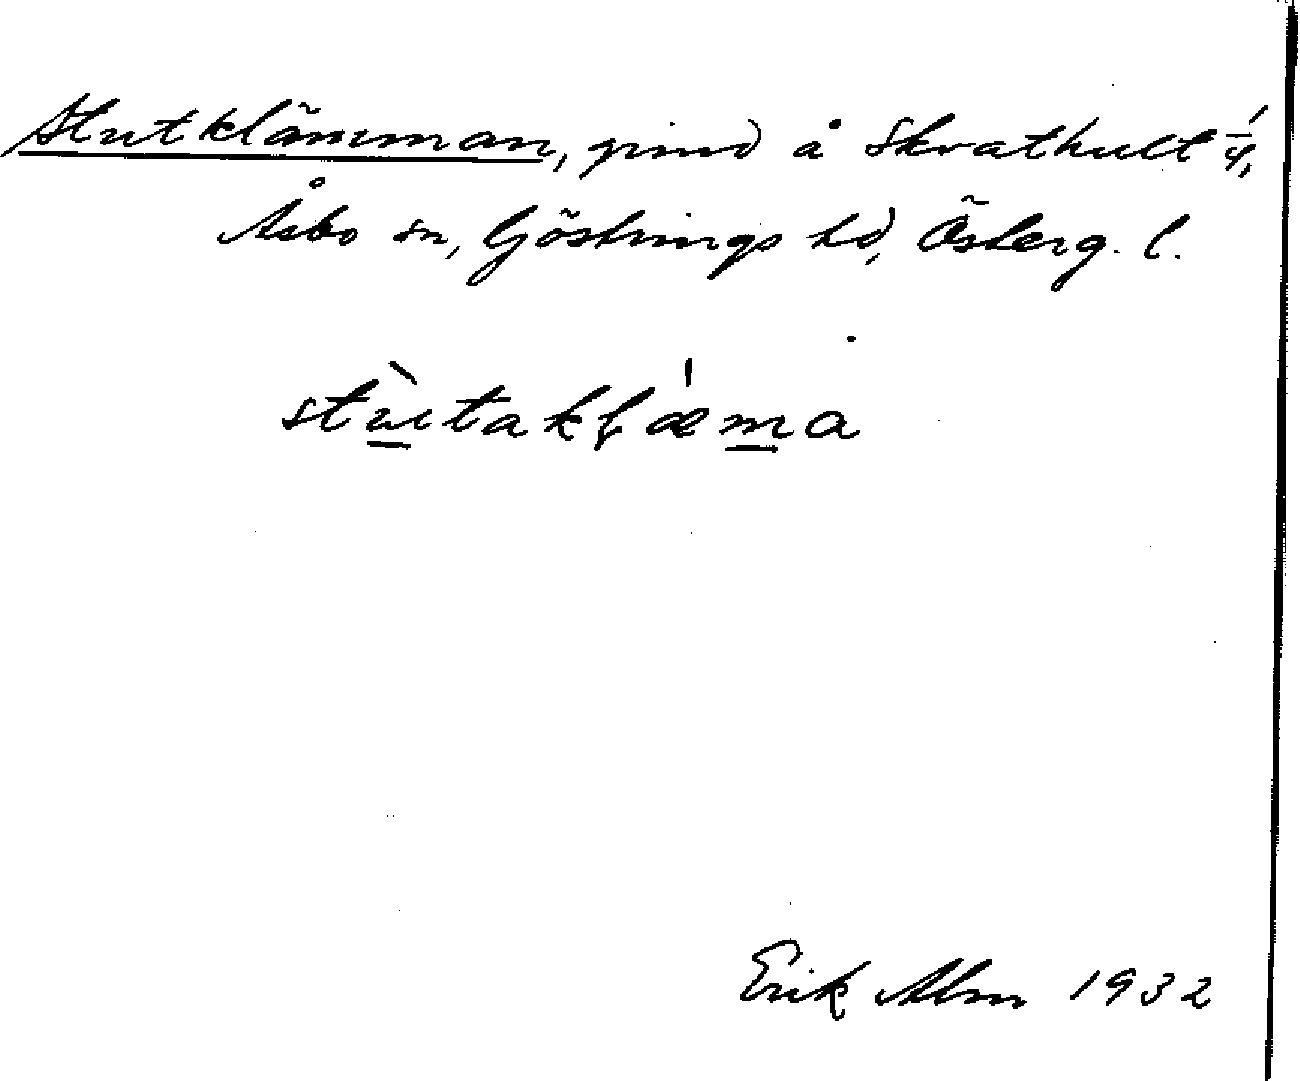 Stutklämman, grind å Skrathult 1/4,
Åsbo sn, Göstrings hd, Österg. l.
stù̲takɭæ̍m̲a
Erik Alm 1932